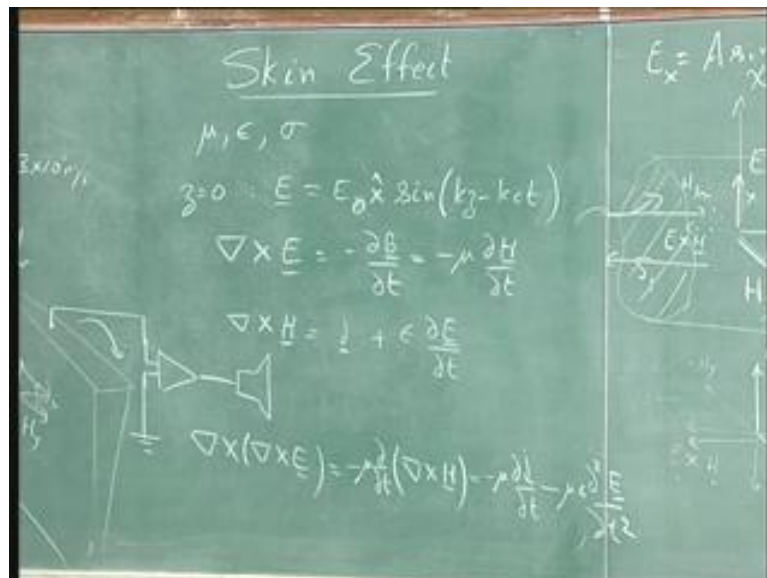 Skin Effect
μ, ϵ, σ
z=0 : E = E₀ x̂ sin(kz-kct)
∇ × E = -∂B/∂t = -μ ∂H/∂t
∇ × H = j + ϵ ∂E/∂t
∇×(∇×E) = -μ ∂/∂t (∇×H) = -μ ∂j/∂t - μϵ ∂²E/∂t²
Eₓ = A
E×H
H